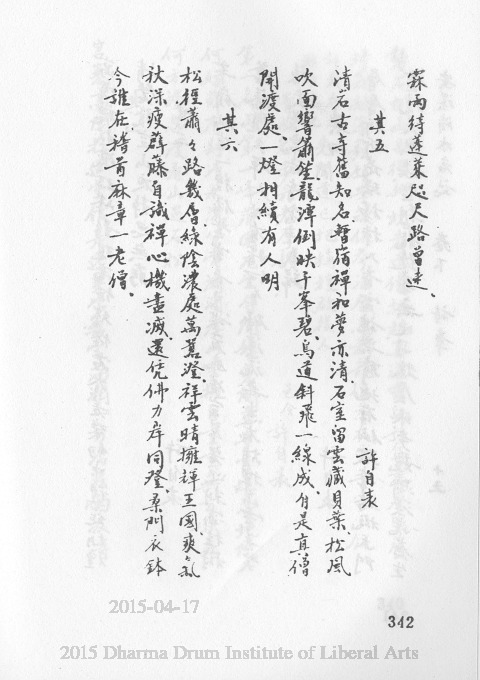 霖雨待蓬萊咫尺路曾迷、
其五
許自表
清石古寺舊知名、暫宿禪和夢亦清、石室留雲藏貝葉、松風
吹面響蕭笙、龍潭倒映千峯碧、鳥道斜飛一線成、自是真僧
開渡處、一燈相續有人明
其六
松徑蕭々路幾層、綠陰濃處萬蒼澄、祥雲晴擁輝王國、爽氣
秋深瘦薜藤、自識禪心機盡滅、還凭佛力岸同登、桑門衣鉢
今誰在、稽首麻章一老僧、
2015-04-17
342
2015 Dharma Drum Institute of Liberal Arts